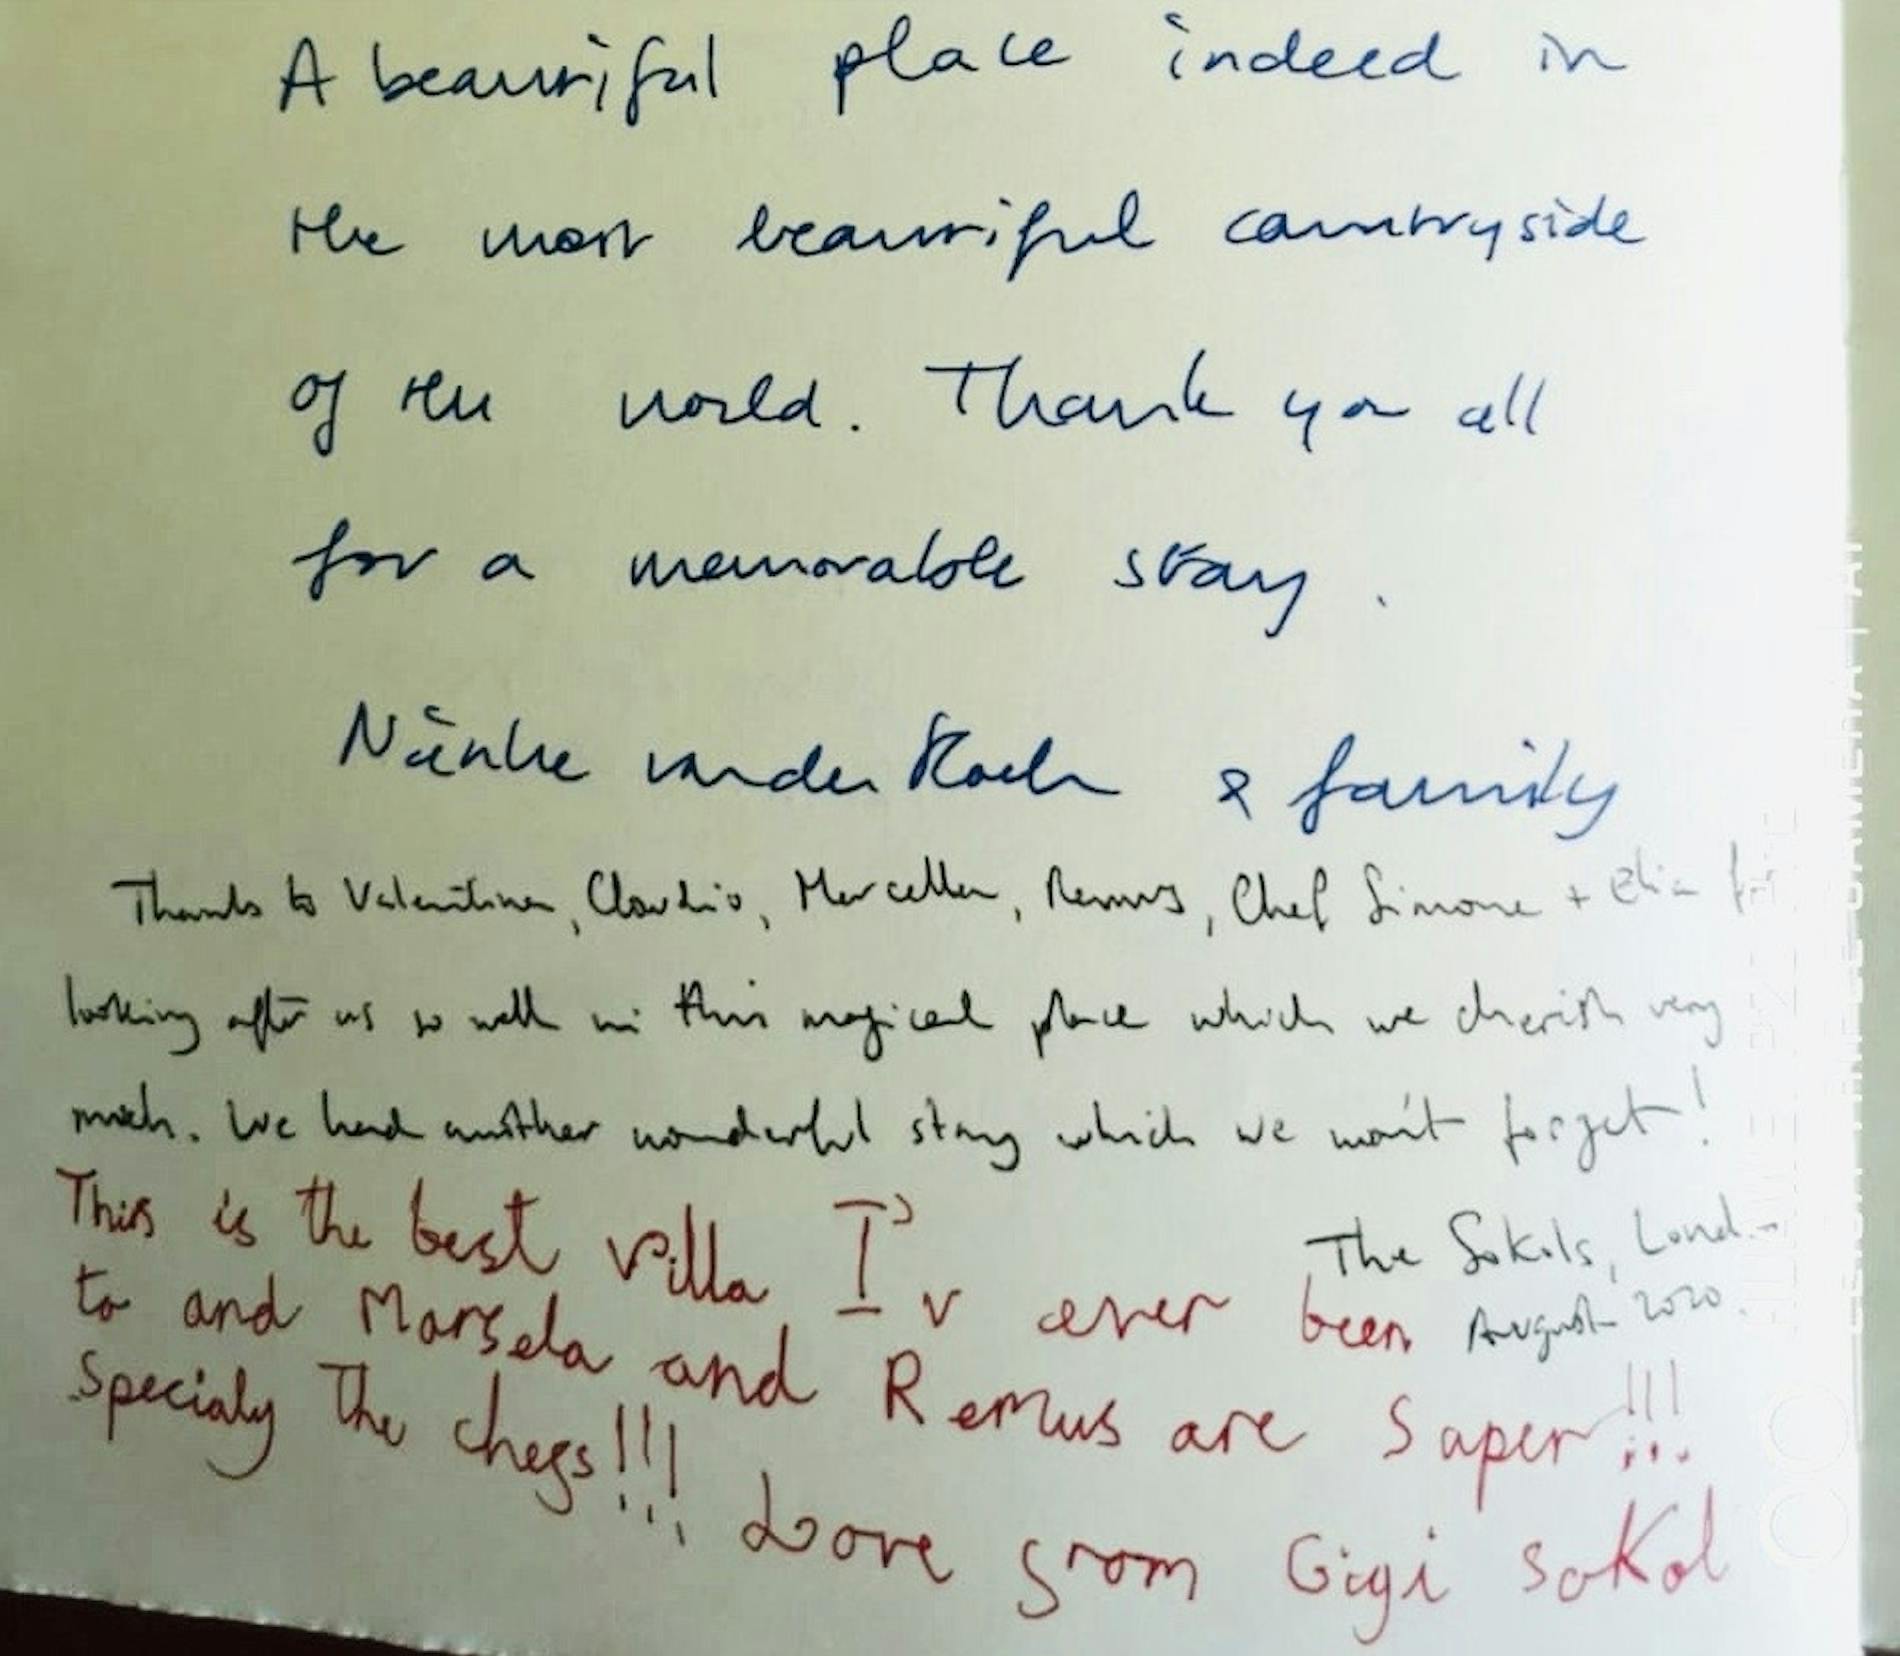 A beautiful place indeed in
the most beautiful countryside
of the world. Thank you all
for a memorable stay.
Nienke van der & family
Thanks to Valentina, Claudio, Marcella, Remus, Chef Simone + Elia for
looking after us so well in this magical place which we cherish very
much. We had another wonderful stay which we won't forget!
The Sokols, London
August 2020.
This is the best villa I'v ever been
to and Marsela and Remus are Super!!!
Specialy the chefs!!!
Love from Gigi Sokol